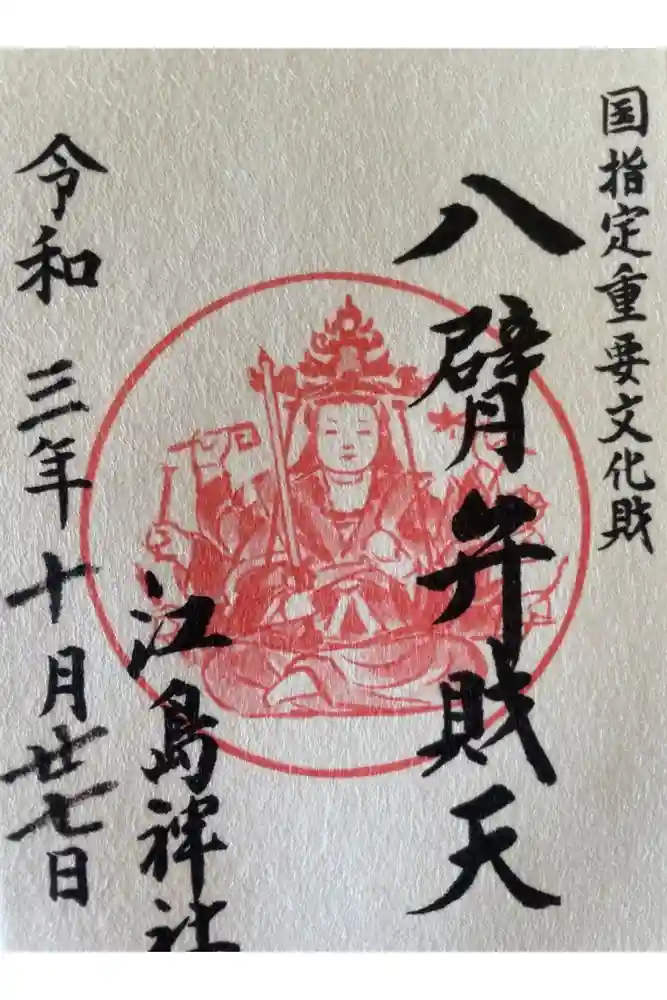 国指定重要文化財
八臂弁財天
江島神社
令和三年十月廿七日